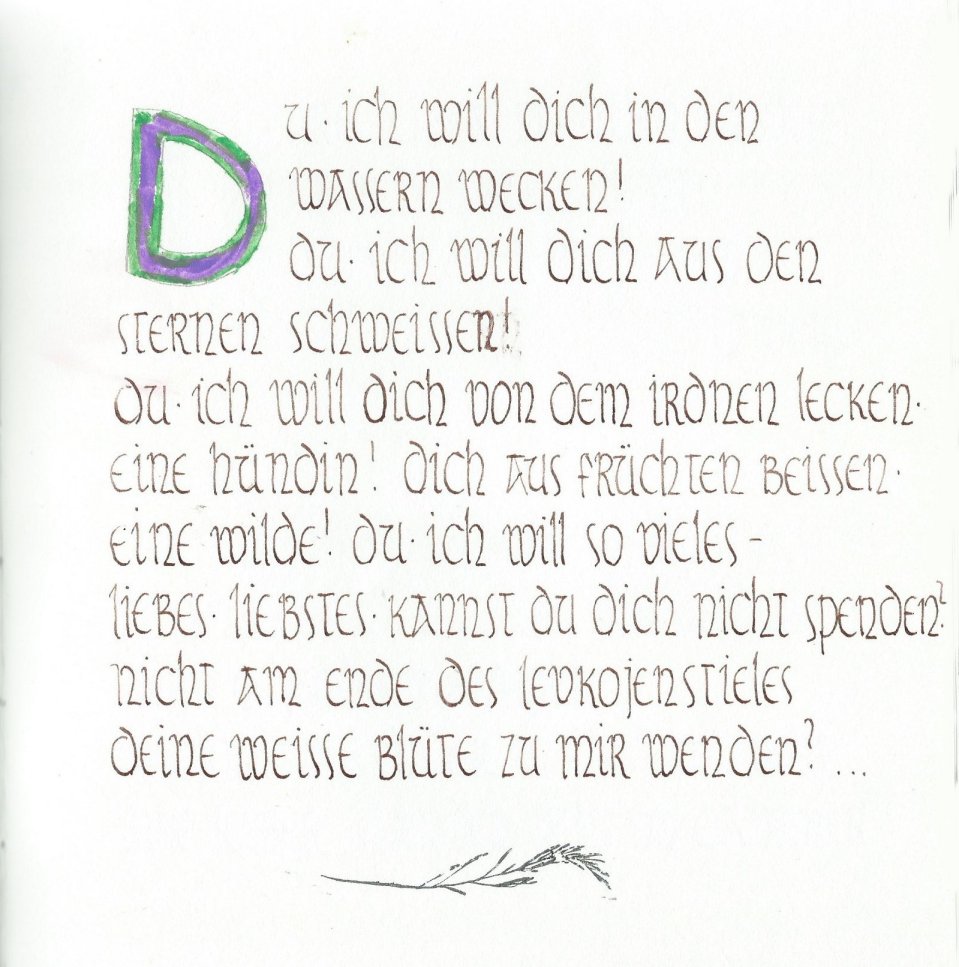 Du · ich will dich in den
wassern wecken!
du · ich will dich aus den
sternen schweissen!
du · ich will dich von dem irdnen lecken ·
eine hündin! dich aus früchten beissen ·
eine wilde! du · ich will so vieles –
liebes · liebstes · kannst du dich nicht spenden?
nicht am ende des levkojenstieles
deine weisse blüte zu mir wenden? ...